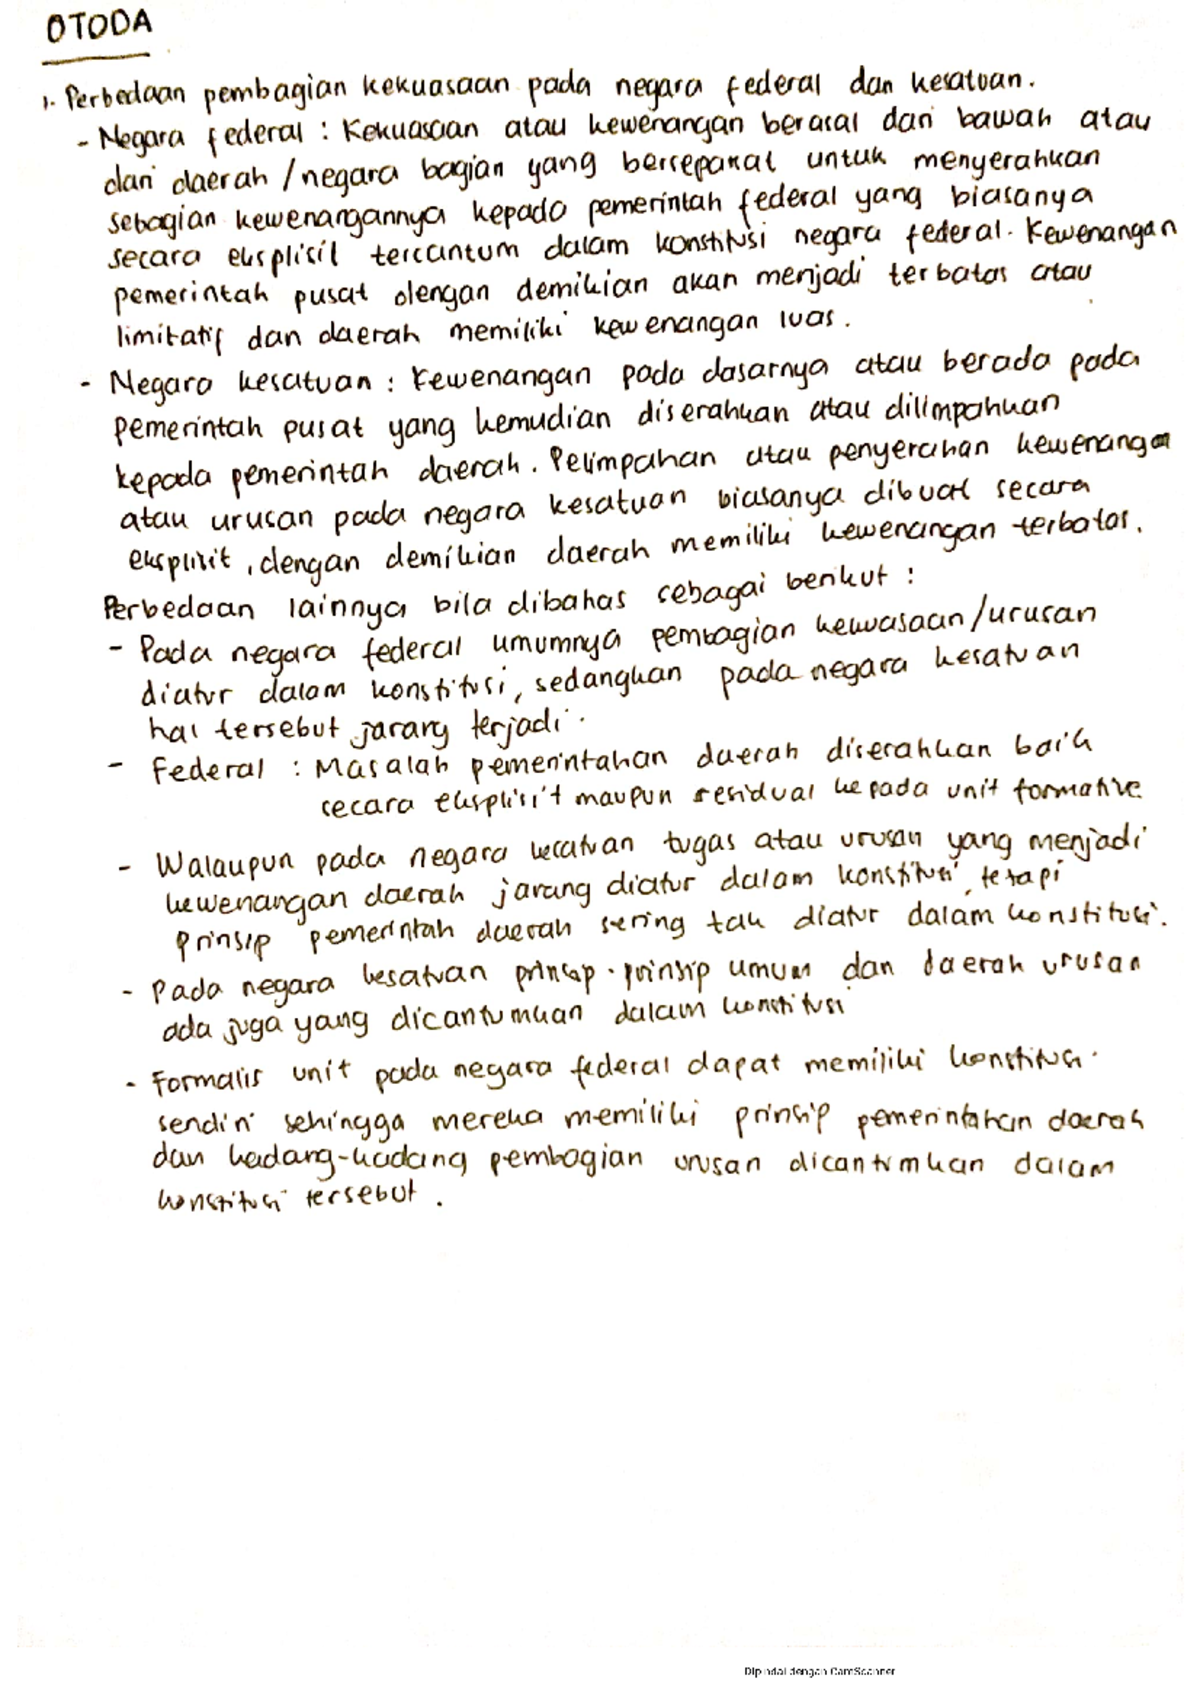 OTODA
1. Perbedaan pembagian kekuasaan pada negara federal dan kesatuan.
- Negara federal : Kekuasaan atau kewenangan berasal dari bawah atau
dari daerah / negara bagian yang bersepakat untuk menyerahkan
sebagian kewenangannya kepada pemerintah federal yang biasanya
secara eksplisit tercantum dalam konstitusi negara federal. Kewenangan
pemerintah pusat dengan demikian akan menjadi terbatas atau
limitatif dan daerah memiliki kewenangan luas.
- Negara kesatuan : Kewenangan pada dasarnya atau berada pada
pemerintah pusat yang kemudian diserahkan atau dilimpahkan
kepada pemerintah daerah. Pelimpahan atau penyerahan kewenangan
atau urusan pada negara kesatuan biasanya dibuat secara
eksplisit, dengan demikian daerah memiliki kewenangan terbatas.
Perbedaan lainnya bila dibahas sebagai berikut :
- Pada negara federal umumnya pembagian kekuasaan/urusan
diatur dalam konstitusi, sedangkan pada negara kesatuan
hal tersebut jarang terjadi.
- Federal : Masalah pemerintahan daerah diserahkan baik
secara eksplisit maupun residual kepada unit formative
- Walaupun pada negara kesatuan tugas atau urusan yang menjadi
kewenangan daerah jarang diatur dalam konstitusi, tetapi
prinsip pemerintah daerah sering tak diatur dalam konstitusi.
- Pada negara kesatuan prinsip-prinsip umum dan daerah urusan
ada juga yang dicantumkan dalam konstitusi
- Formalis unit pada negara federal dapat memiliki konstitusi
sendiri sehingga mereka memiliki prinsip pemerintahan daerah
dan kadang-kadang pembagian urusan dicantumkan dalam
konstitusi tersebut.
Dipindai dengan CamScanner